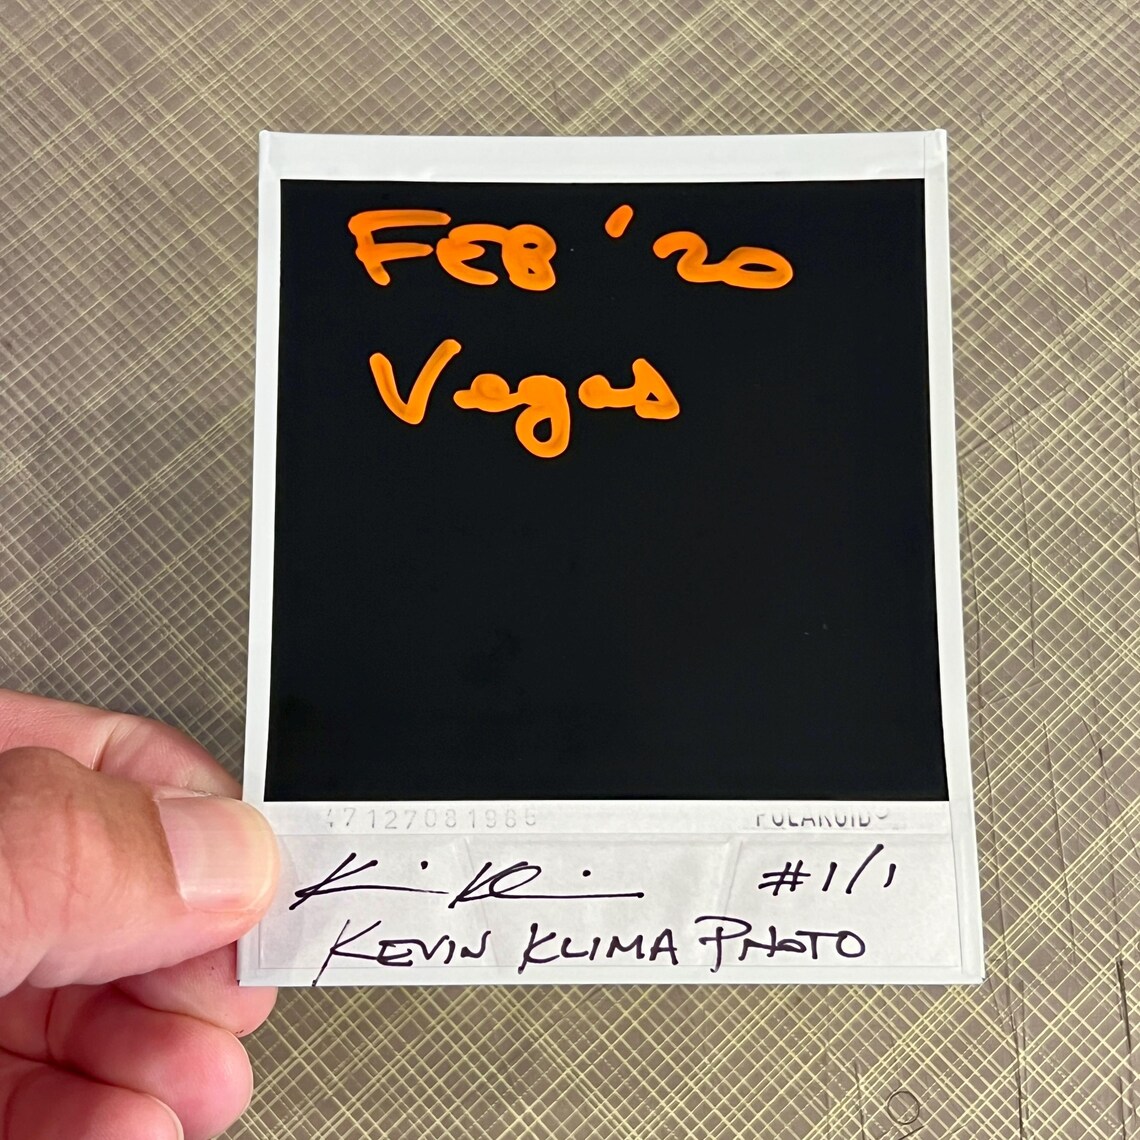 FEB '20
Vegas
47127081985 POLAROID®
#1/1
KEVIN KLIMA PHOTO